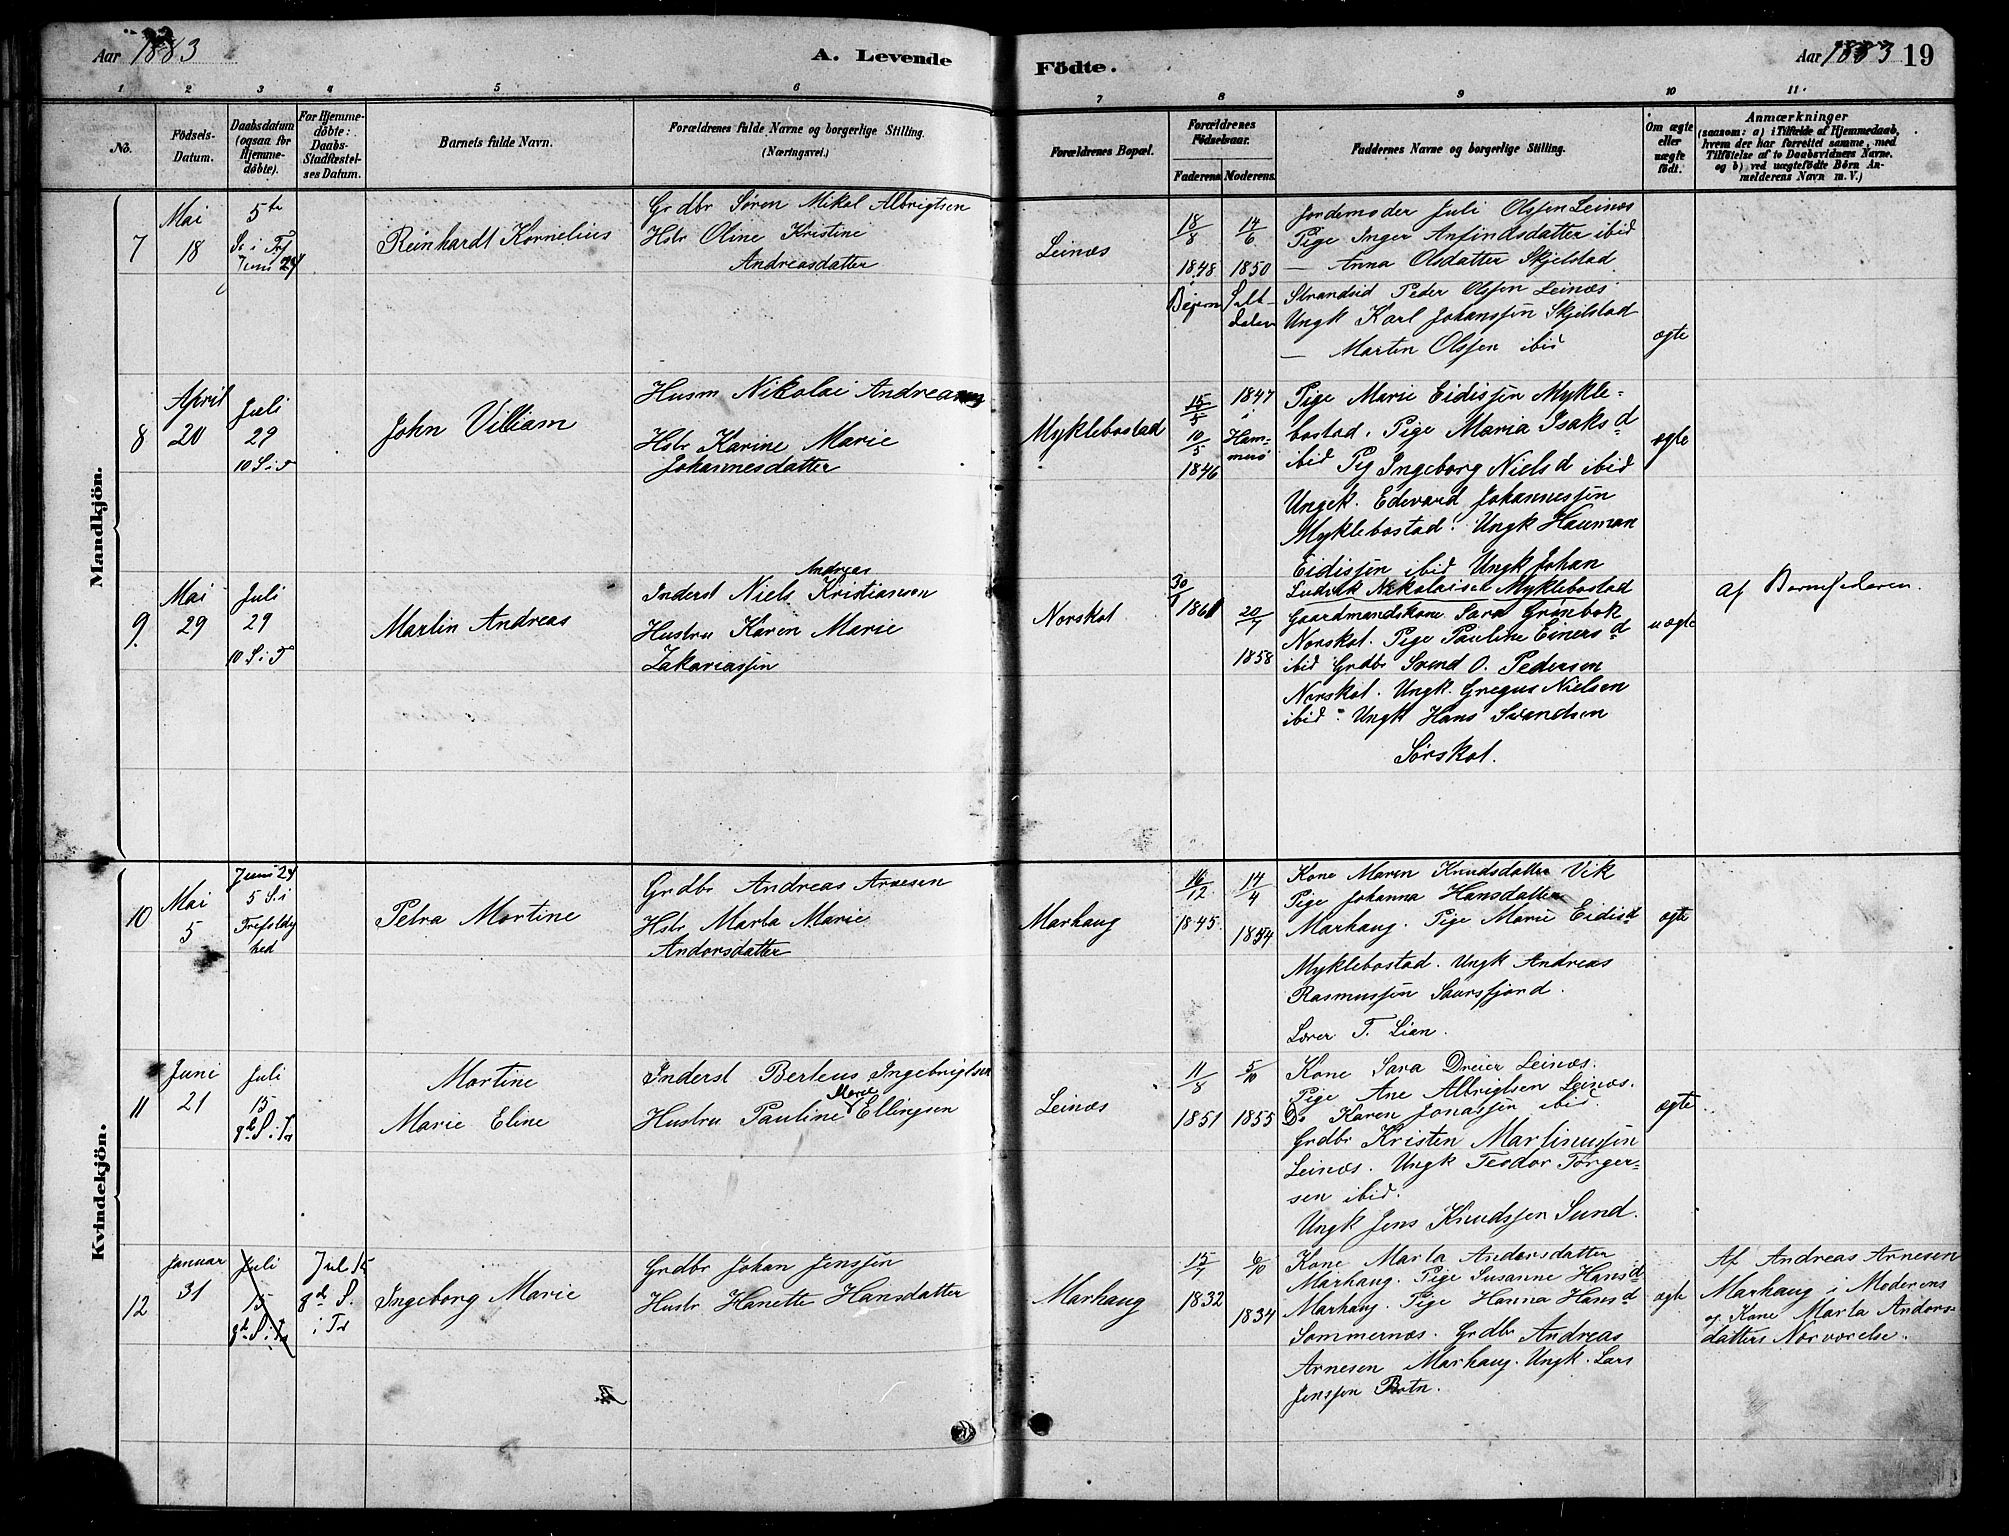 Aar 1883
A. Levende
Födte.
Aar 1883 19
1 2 3 4 5 6 7 8 9 10 11
No.
Födsels-
Datum.
Daabsdatum
(ogsaa for
Hjemme-
döbte).
For Hjemme-
döbte:
Daabs-
Stadfæstel-
ses Datum.
Barnets fulde Navn.
Forældrenes fulde Navne og borgerlige Stilling.
(Næringsvei.)
Forældrenes Bopæl.
Forældrenes
Födselsaar.
Faderens. Moderens.
Faddernes Navne og borgerlige Stilling.
Om ægte
eller
uægte
födt.
Anmærkninger
(saasom: a) i Tilfælde af Hjemmedaab,
hvem der har forrettet samme, med
Tilföielse af to Daabsvidners Navne,
og b) ved uægtefödte Börn An-
melderens Navn m. V.)
Mandkjön.
7
Mai
18
5te
S. i Tref
Juni 24
Reinhardt Kornelius
Grdbr Søren Mikal Albrigtsen
Hstr Oline Kristine
Andreasdatter
Leinæs
18/8
1848
Bejern
14/6
1850
Salt-
dalen
Jordemoder Juli Olssen Leinæs
Pige Inger Anfindsdatter ibid
— Anna Olsdatter Skjelstad
Strandsid Peder Olssen Leinæs
Ungk Karl Johanssen Skjelstad
— Martin Olssen ibid
ægte
8
April
20
Juli
29
10 S. i T
John Villiam
Husm Nikolai Andreassen
Hstr Karine Marie
Johannesdatter
Myklebostad
15/5
10/5
1846
1847
i
Ham-
merø
Pige Marie Eidissen Mykle-
bostad. Pige Maria Isaksd
ibid Pig Ingeborg Nielsd ibid
Ungek. Edevard Johannessen
Myklebostad. Ungk Hauman
Eidissen ibid Ungk Johan
Ludvik Nikolaisen Myklebostad
ægte
9.
Mai
29
Juli
29
10 S. i T
Martin Andreas
Andreas
Inderst Niels Kristiansen
Hustru Karen Marie
Zakariassen
Norskot
30
1861
20/7
1858
Gaardmandskone Sara Grønbek
Norskot. Pige Pauline Einersd
ibid Grdbr Svend O. Pedersen
Norskot. Ungk. Gregus Nielsen
ibid. Ungk Hans Svendsen
Sørskot.
uægte
Af Barnefaderen.
Kvindekjön.
10
Mai
5
Juni 24
5 S. i
Trefoldig
hed
Petra Martine
Grdbr Andreas Arnesen
Hstr Marta Marie
Andorsdatter
Marhaug
16/12
1845.
14/4
1854
Kone Maren Knudsdatter Vik
Pige Johanna Hansdatter
Marhaug. Pige Marie Eidisd
Myklebostad. Ungk Andreas
Rasmussen Saursfjord.
Lærer T. Lian.
ægte
11
Juni
21
Juli
15
8de S. i Tr
Martine
Marie Eline
Inderst Berteus Ingebrigtsen
Marie
Hustru Pauline Ellingsen
Leinæs
11/8
1851
5/10
1855
Kone Sara Dreier Leinæs.
Pige Ane Albrigtsen Leinæs.
Do Karen Jonassen ibid
Grdbr Kristen Martinussen
Leinæs. Ungk Teodor Torger-
sen ibid.
Ungk Jens Knudssen Sund.
ægte
12
Januar
31
Juli
15
8de S. i Tr
Jul 15
8de S.
i Tr
Ingeborg Marie
Grdbr Johan Jenssen
Hustr Hanette Hansdatter
Marhaug
15/7
1832
6/10
1834
Kone Marta Andorsdatter
Marhaug. Pige Susanne Hansd
Marhaug. Pige Hanna Hansd
Sommernæs. Grdbr Andreas
Arnesen Marhaug. Ungk. Lars
Jenssen Botn.
ægte
Af Andreas Arnesen
Marhaug i Moderens
og Kone Marta Andors-
datters Nærværelse.